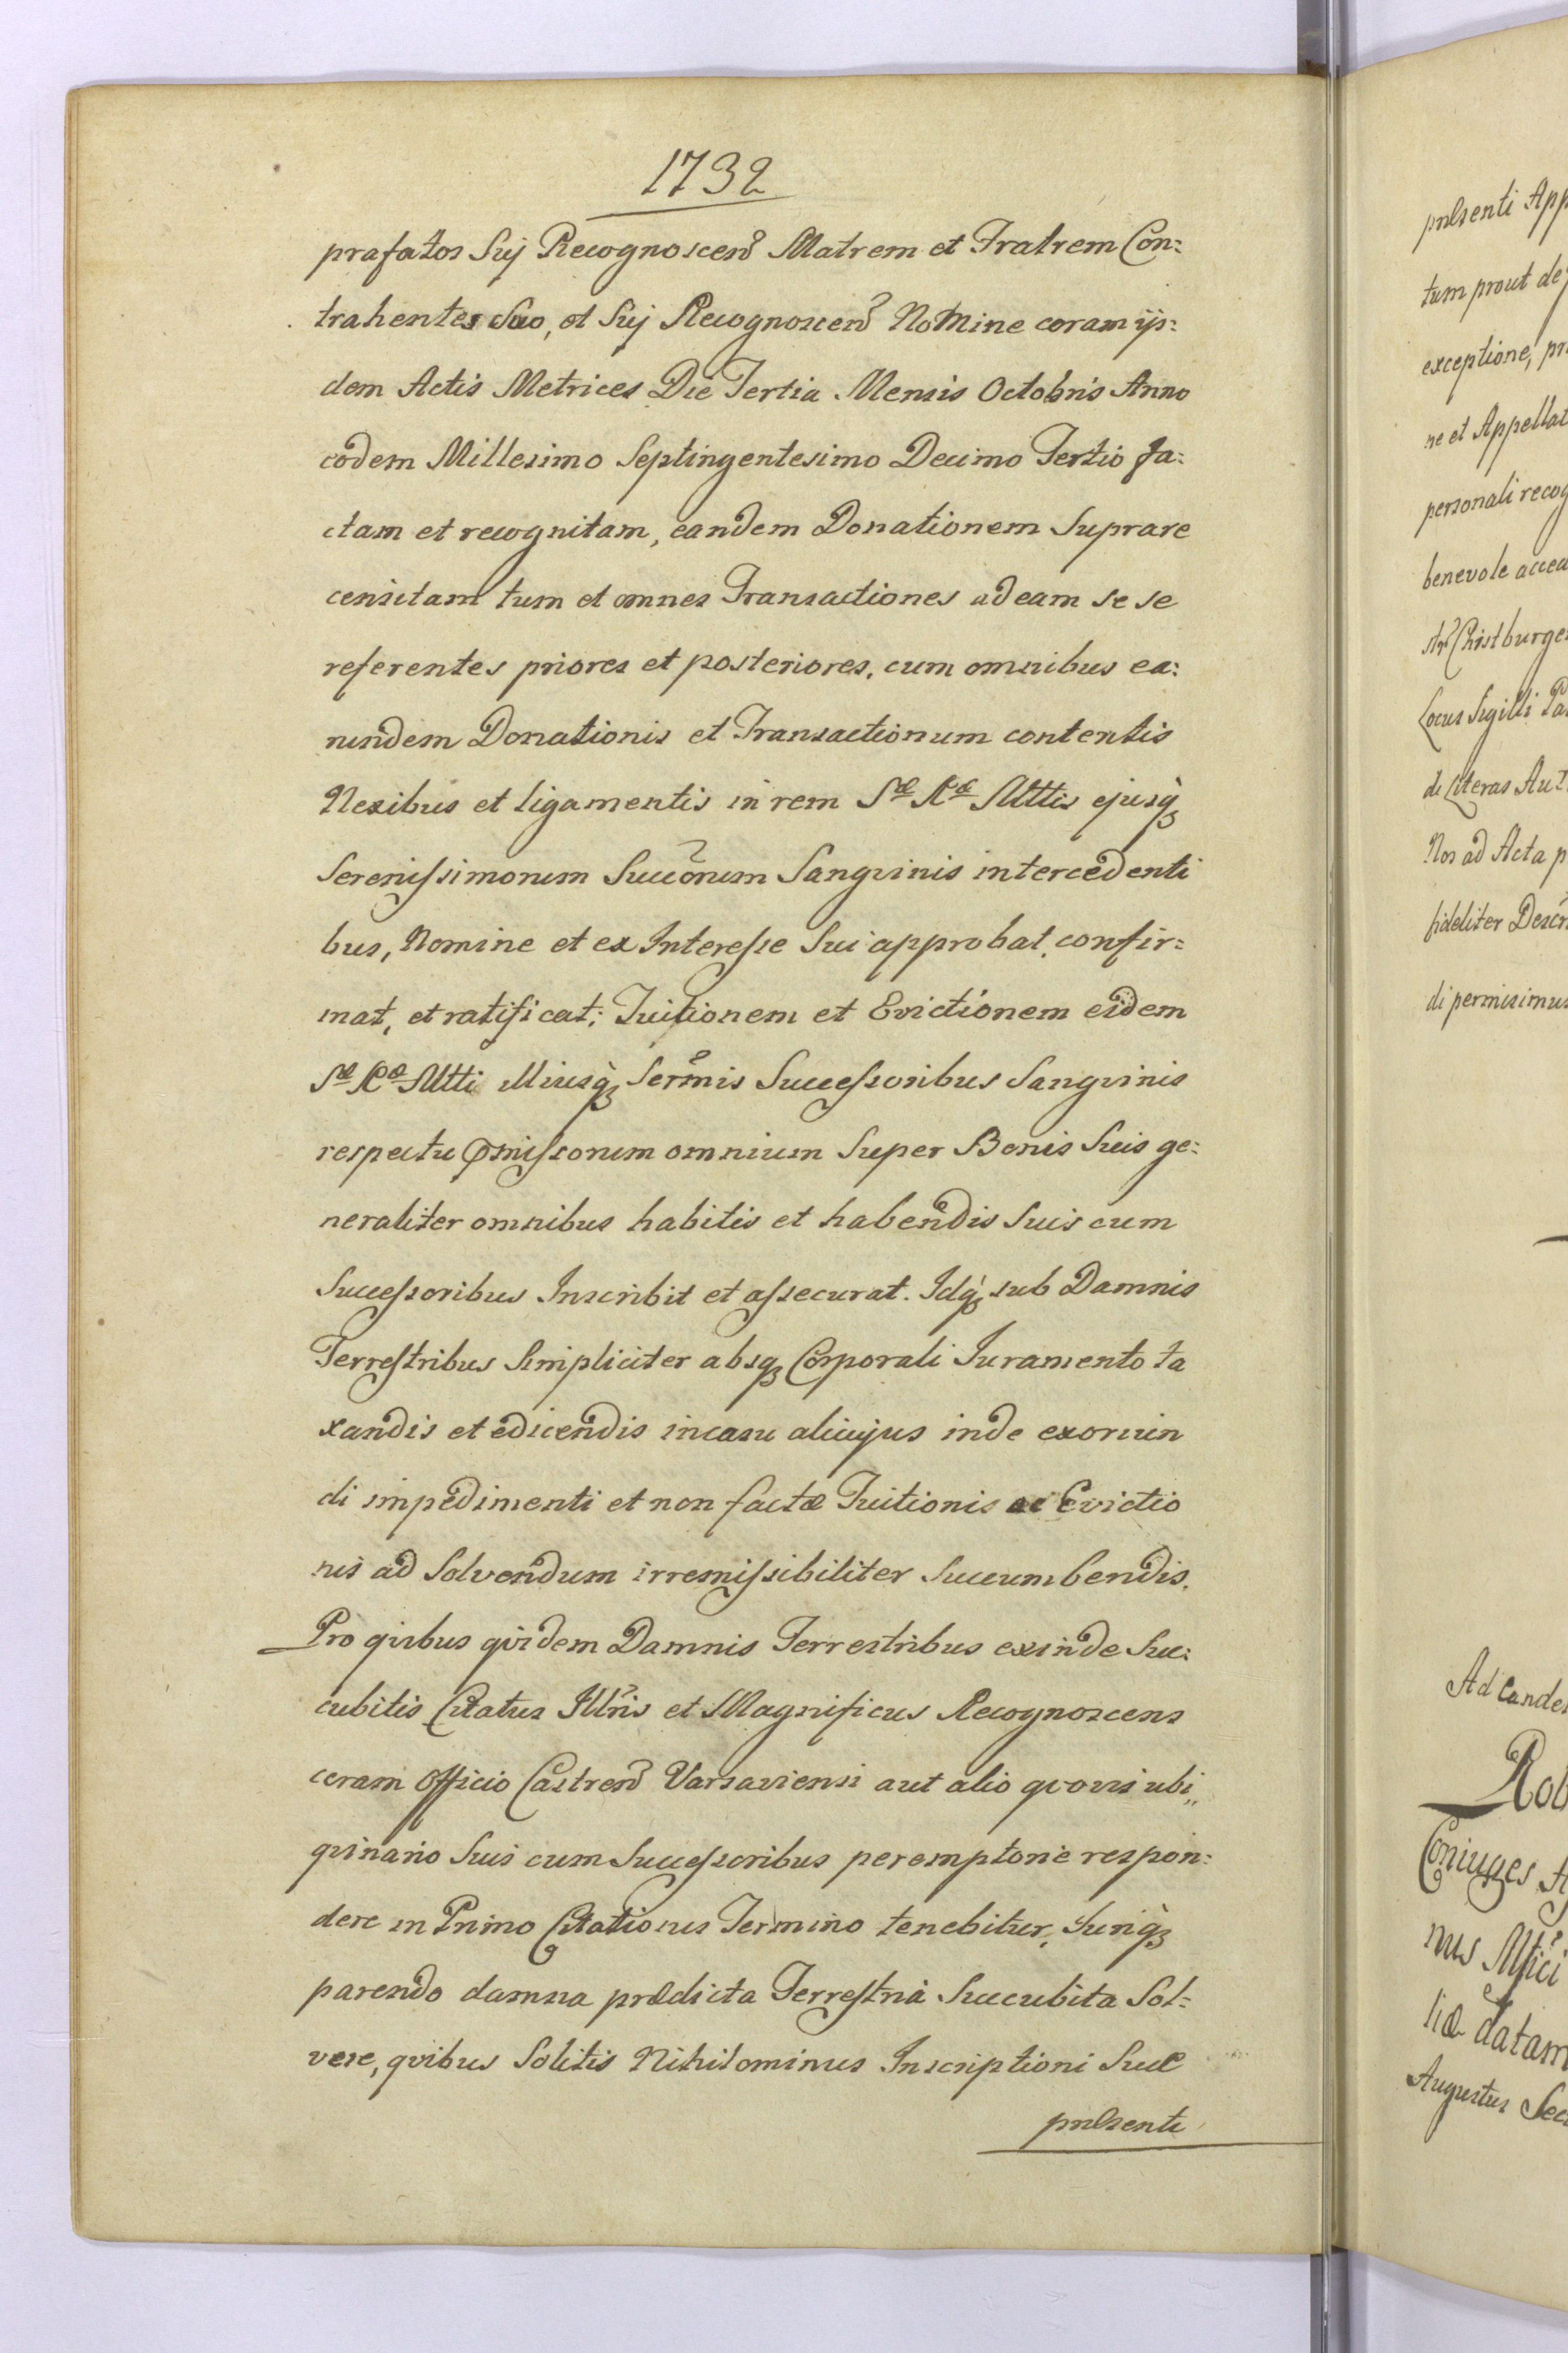 1732
præfatos Suj Recognoscen̄ Matrem et Fratrem Con:
trahentes Suo, et Suj Recognoscen̄ Nomine coram ijs:
dem Actis Metrices Die Tertia Mensis Octobris Anno
eodem Millesimo Septingentesimo Decimo Tertio fa:
ctam et recognitam, eandem Donationem Suprare
censitam tum et omnes Transactiones ad eam se se
referentes priores et posteriores, cum omnibus ea:
rundem Donationis et Transactionum contentis
Nexibus et ligamentis in rem Sæ Ræ Mttis ejusq̀ꝫ
Serenissimorum Succōrum Sangvinis intercedenti
bus, Nomine et ex Interesse Sui approbat, confir:
mat, et ratificat; Tuitionem et Evictionem eidem
Sæ Ræ Mtti Illiusq̀ꝫ Serm̄is Successoribus Sangvinis
respectu Præmissorum omnium Super Bonis Suis ge:
neraliter omnibus habitis et habendis Suis cum
Successoribus Inscribit et assecurat. Idq̀ꝫ sub Damnis
Terrestribus Simpliciter absqꝫ Corporali Juramento ta
xandis et edicendis in casu alicujus inde exoriun
di impedimenti et non factæ Tuitionis ac Evictio
nis ad Solvendum irremissibiliter Succumbendis.
Pro qvibus qvidem Damnis Terrestribus exinde Suc:
cubitis Citatus Illr̄is et Magnificus Recognoscens
coram Officio Castren̄ Varsaviensi aut alio qvovis ubi„
qvinario Suis cum Successoribus peremptorie respon:
dere in Primo Citationis Termino tenebitur, Juriq̀ꝫ
parendo damna prædicta Terrestria Succubita Sol:
vere, qvibus Solutis Nihilominus Inscriptioni Suæ
præsenti
præsenti App
tum prout de
exceptione, pr
ne et Appellat
personali recog
benevole accea
Christburge
Locus Sigilli
de Literas Aut
Nos ad Acta p
fideliter Descr
di permisimus
Ad Eande
Rob
Coniuges
nus
liæ datam
Augustus Sec